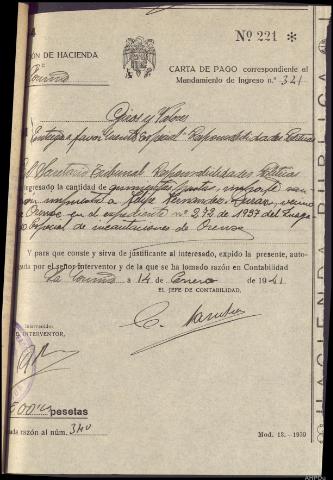 Nº 221 *
ÓN DE HACIENDA
DE
Coruña
CARTA DE PAGO correspondiente al
Mandamiento de Ingreso n.º 321
Giros y Valores
Entrega a favor Cuenta Especial - Responsabilidades Políticas
El Secretario Tribunal Responsabilidades Políticas
ingresado la cantidad de quinientas pesetas, importe
impuesta a Felipe Fernández vecino
Orense en el expediente nº 272 de 1937 del Juzga
Especial de incautaciones de Orense
Y para que conste y sirva de justificante al interesado, expido la presente, auto-
zada por el señor interventor y de la que se ha tomado razón en Contabilidad
La Coruña a 14 de Enero de 1941
EL JEFE DE CONTABILIDAD,
Intervenido:
INTERVENTOR,
500 pesetas
ada razón al núm. 340
Mod. 13.-1939
HACIENDA PUBLICA